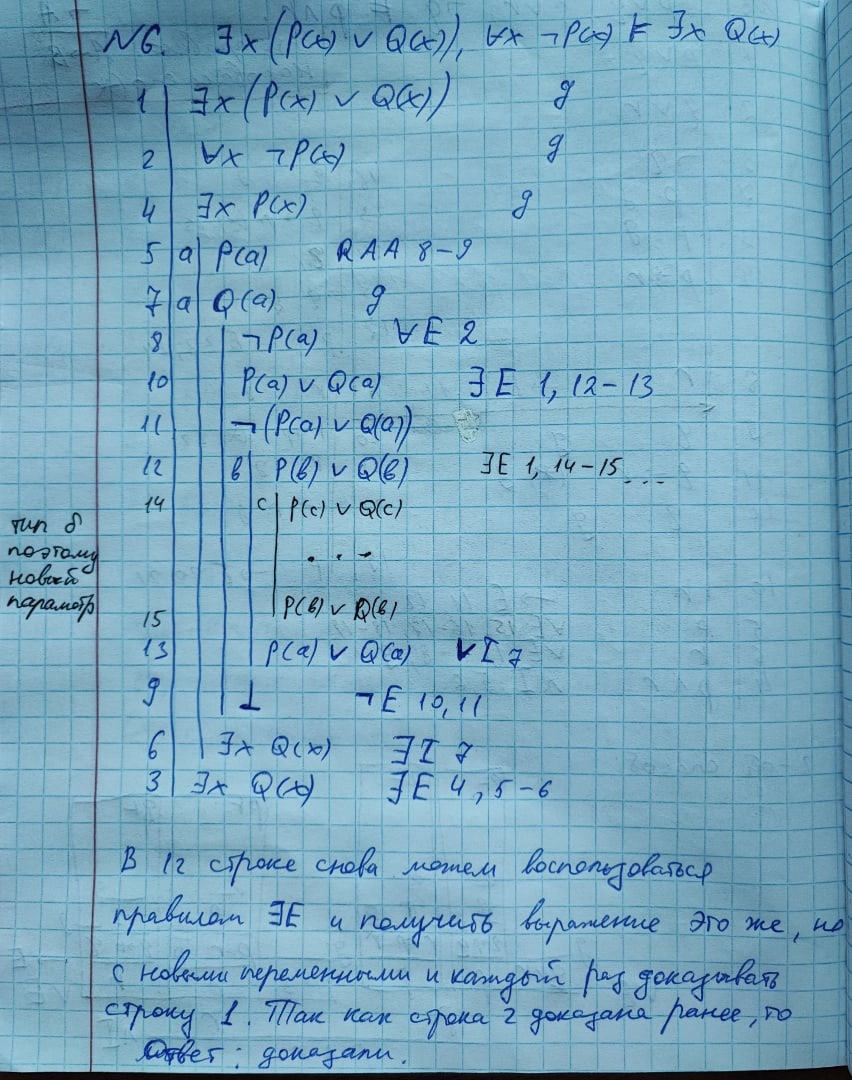 №6. ∃x (P(x) ∨ Q(x)), ∀x ¬P(x) ⊧ ∃x Q(x)
1 ∃x (P(x) ∨ Q(x)) g
2 ∀x ¬P(x) g
4 ∃x P(x) g
5 a P(a) RAA 8-9
7 a Q(a) g
8 ¬P(a) ∀E 2
10 P(a) ∨ Q(a) ∃E 1, 12-13
11 ¬(P(a) ∨ Q(a))
12 в P(в) ∨ Q(в) ∃E 1, 14-15 ...
14 c P(c) ∨ Q(c)
тип δ
поэтому
новый
параметр
...
15 P(в) ∨ Q(в)
13 P(a) ∨ Q(a) ∨I 7
9 ⊥ ¬E 10, 11
6 ∃x Q(x) ∃I 7
3 ∃x Q(x) ∃E 4, 5-6
В 12 строке снова можем воспользоваться
правилом ∃E и получить выражение это же, но
с новыми переменными и каждый раз доказывать
строку 1. Так как строка 2 доказана ранее, то
Ответ: доказали.